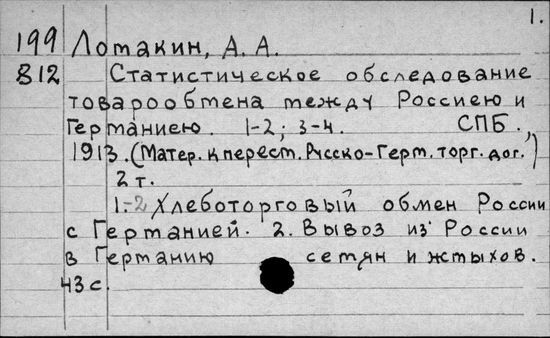 1.
199 Лотакин, А. А.
812 Статистическое обследование
товарообмена между Россиею и
Германиею. 1-2; 3-4. СПБ.,
1913. (Матер. к перест. Русско-Герм. торг. дог.)
2 т.
1.-2 Хлеботорговый обмен России
с Германией. 2. Вывоз из России
в Германию семян и жмыхов.
43 с.